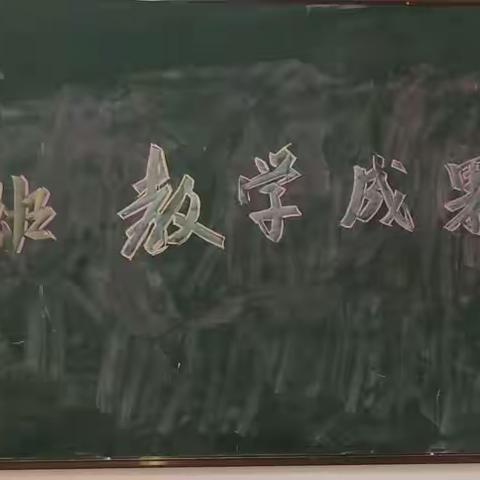 班 教学成果